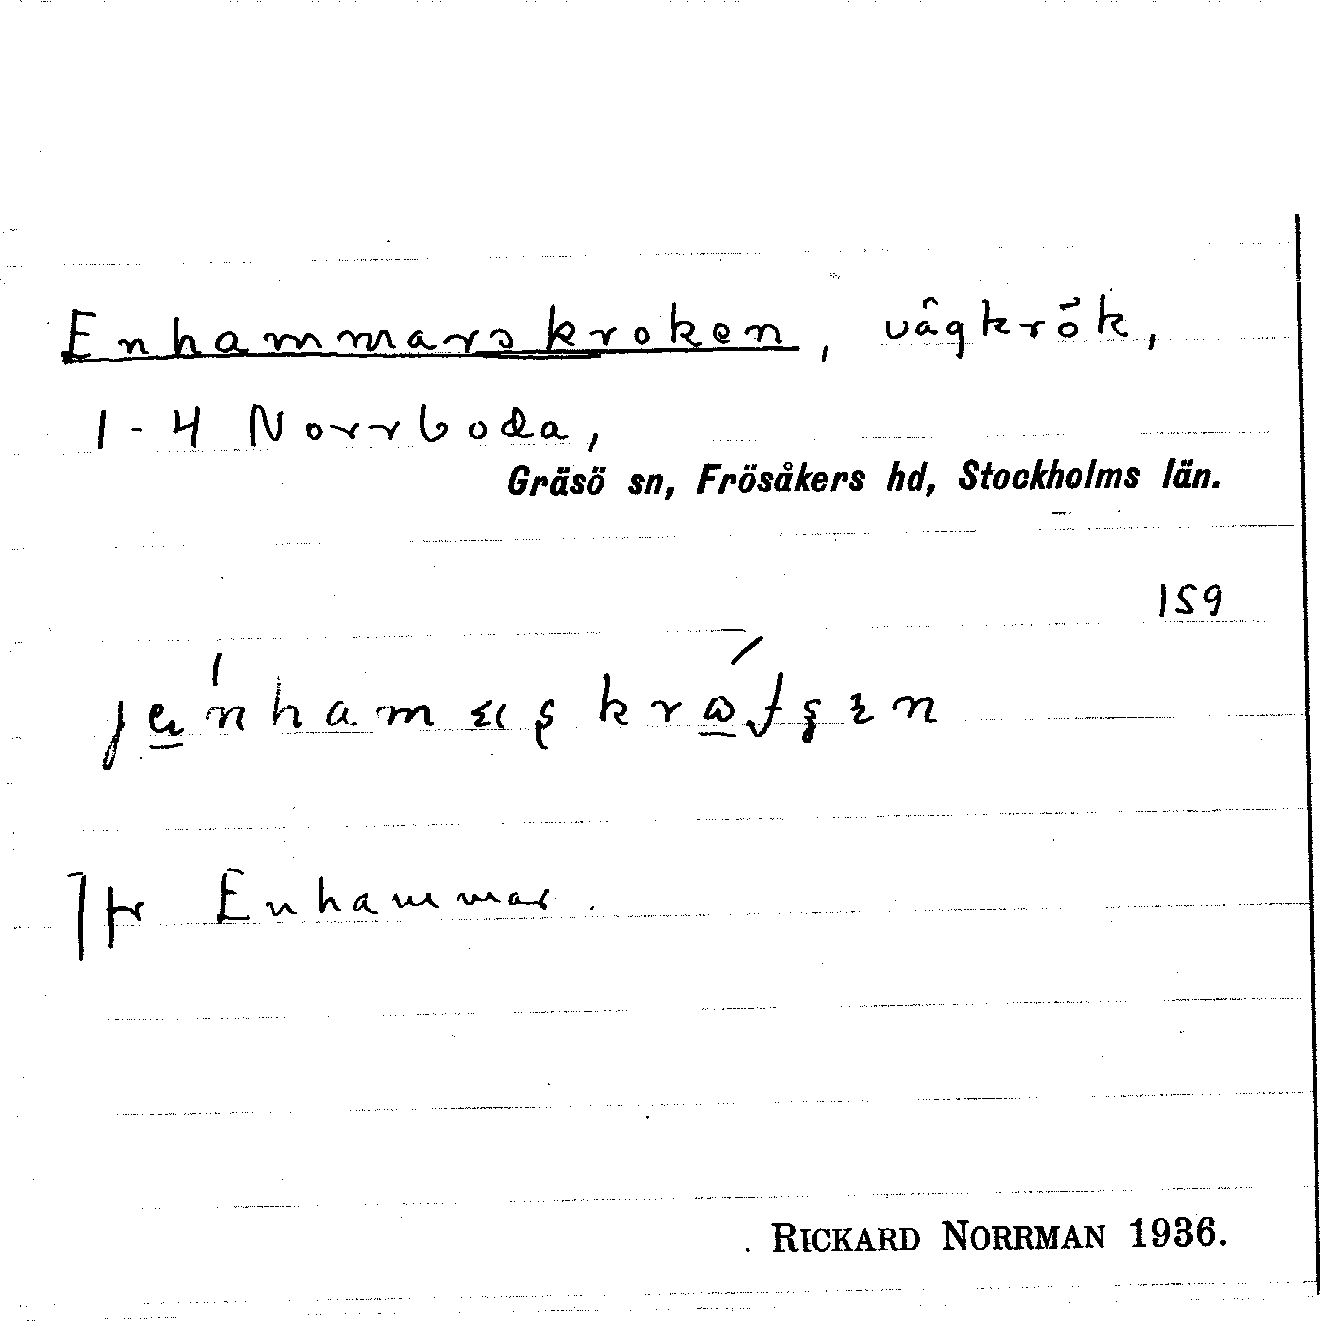 Enhammarskroken, vägkrök,
1-4 Norrboda,
Gräsö sn, Frösåkers hd, Stockholms län.
159
Jfr Enhammar.
RICKARD NORRMAN 1936.